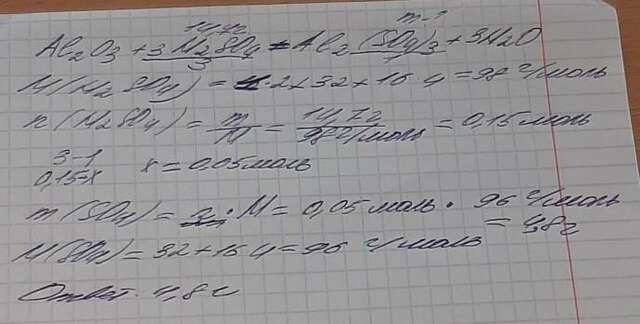 14,7г m-?
Al₂O₃ + 3H₂SO₄ = Al₂(SO₄)₃ + 3H₂O
3 1
M(H₂SO₄) = 1·2+32+16·4 = 98 г/моль
n(H₂SO₄) = m/M = 14,7г/98г/моль = 0,15 моль
3-1
0,15-x x = 0,05 моль
m(SO₄) = n · M = 0,05 моль · 96 г/моль
= 4,8г
M(SO₄) = 32+16·4 = 96 г/моль
Ответ: 4,8г